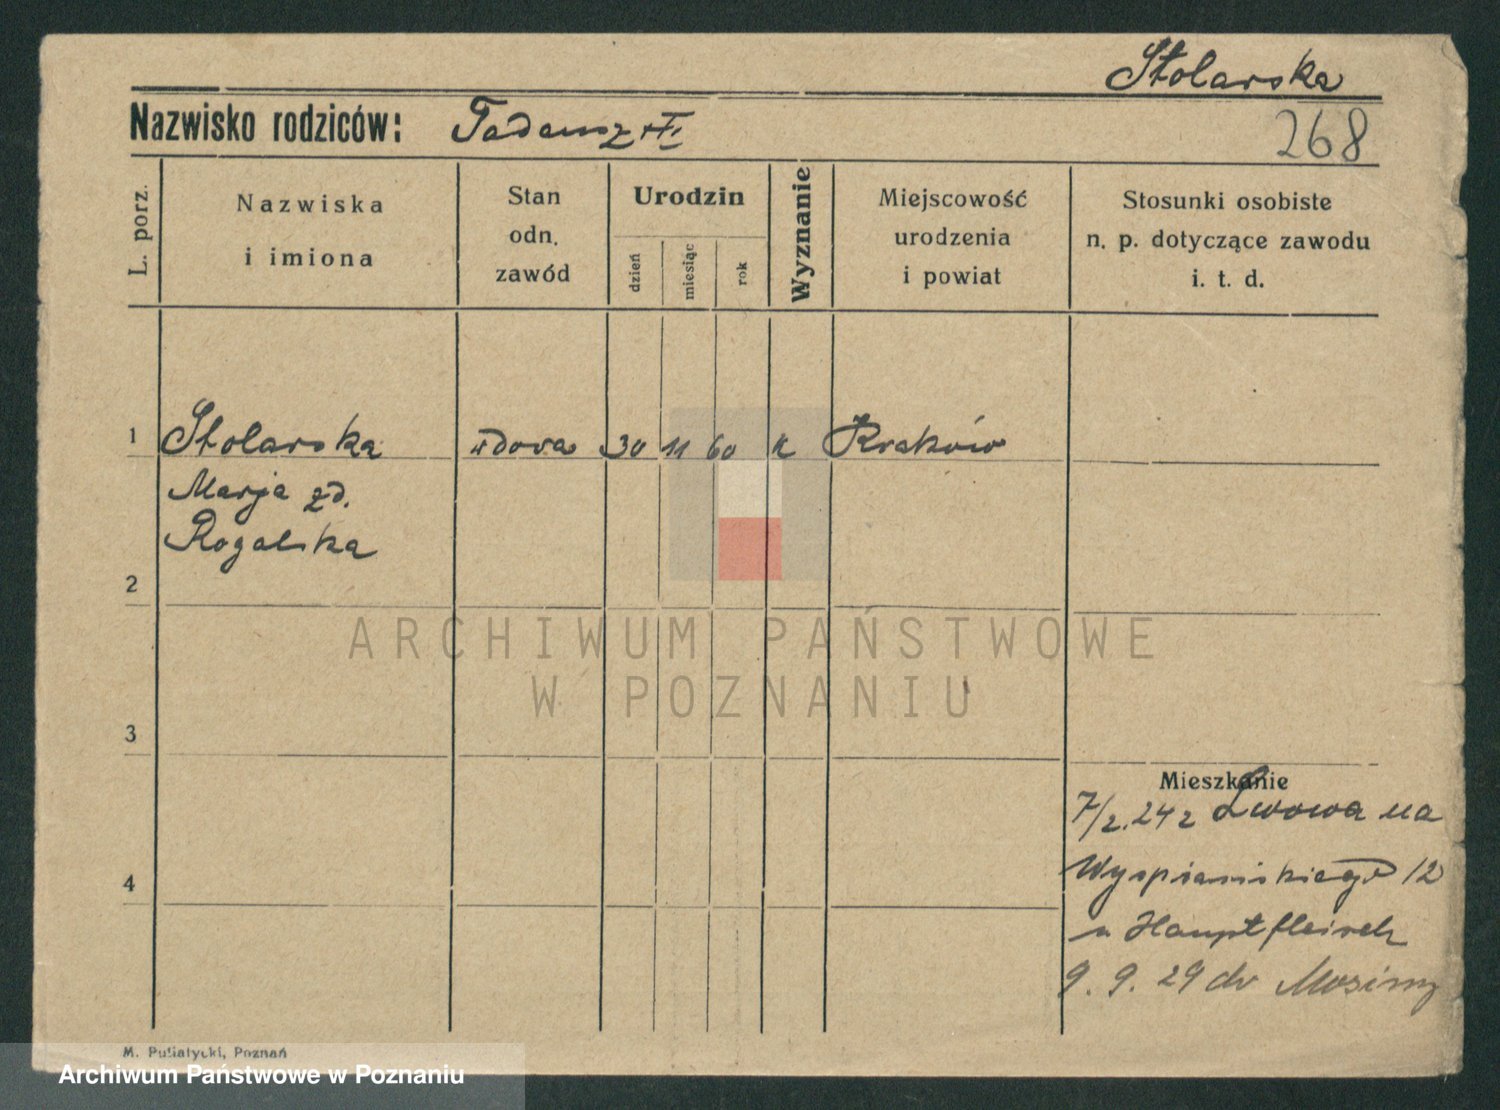 Stolarska
Nazwisko rodziców: Tadeusz
268
L. porz.
Nazwiska
i imiona
Stan
odn.
zawód
Urodzin
dzień
miesiąc
rok
Wyznanie
Miejscowość
urodzenia
i powiat
Stosunki osobiste
n. p. dotyczące zawodu
i. t. d.
1 Stolarska wdova 30 11 60 k Kraków
Marja zd.
Rogalska
2
3
4
Mieszkanie
7/2.24 z Lwowa na
Wyspiańskiego 12
u Hauptfleisch
9. 9. 29 do Mosiny
M. Putiatycki, Poznań
ARCHIWUM PAŃSTWOWE
W POZNANIU
Archiwum Państwowe w Poznaniu